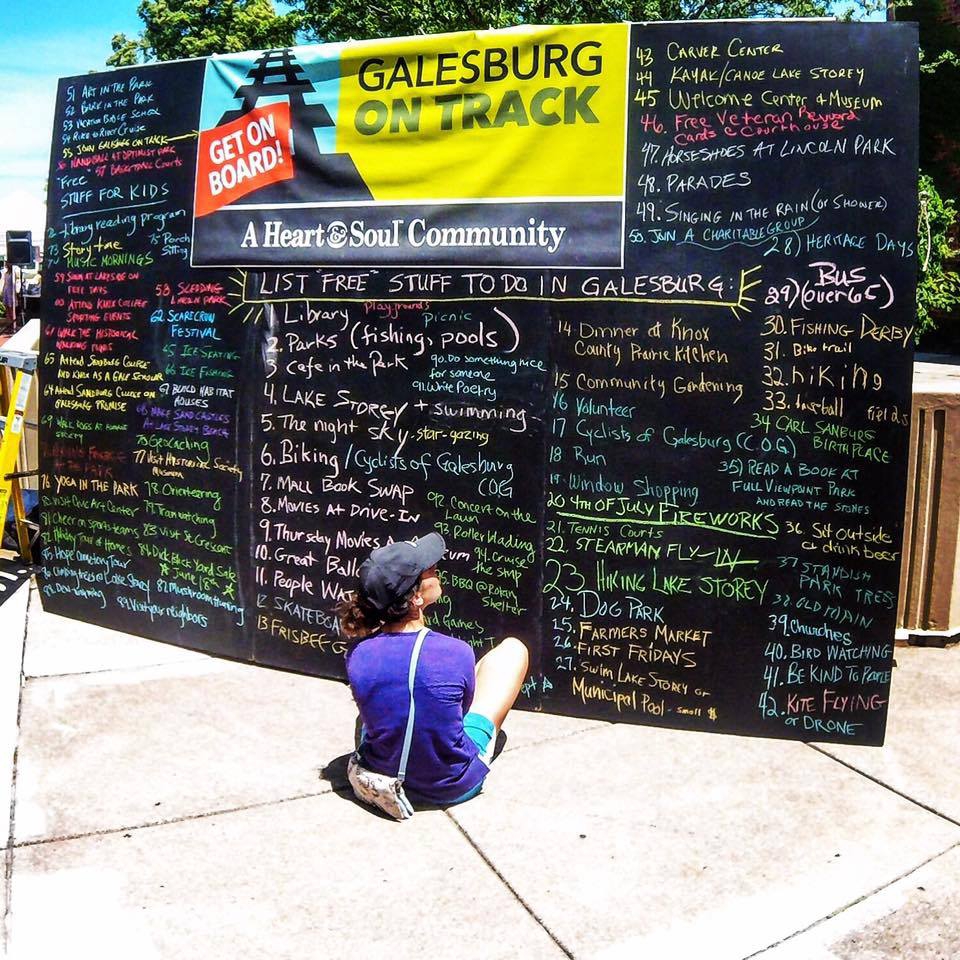 GALESBURG
ON TRACK
GET ON
BOARD!
A Heart & Soul Community
LIST "FREE" STUFF TO DO IN GALESBURG:
51 ART IN THE PARK
52 BARK IN THE PARK
53 VACATION BIBLE SCHOOL
54 BIKE TO RIVER CRUISE
55 JOIN GALESBURG ON TRACK
56 HANDBALL AT OPTIMIST PARK
"Free" 57 BASKETBALL COURTS
STUFF FOR KIDS
Library reading program
73 Story time
75 Porch
Sitting
MUSIC MORNINGS
59 SWIM AT LAKESIDE ON
FREE DAYS
60 ATTEND KNOX COLLEGE
SPORTING EVENTS
61 WALK THE HISTORICAL
WALKING TOURS
63 Attend SANDBURG COLLEGE
AND KNOX AS A GALE SCHOLAR
64 Attend SANDBURG COLLEGE ON
GALESBURG PROMISE
69 WALK DOGS AT HUMANE
SOCIETY
76 YOGA IN THE PARK
58 SLEDDING
LINCOLN PARK
62 SCARECROW
FESTIVAL
65 ICE SKATING
66 ICE FISHING
67 BUILD HABITAT
HOUSES
68 MAKE SAND CASTLES
AT LAKE STOREY BEACH
70 Geocaching
77 Visit HISTORICAL Society
Museum
78. Orienteering
80. Visit Civic Art Center
79. Train watching
81 Cheer on sports teams
83 Visit St. Geiseort
82 Holiday Tour of Homes
84 Dick Black Yard Sale
June 18th
85. Hope Cemetery Tour
86 Climbing trees at Lake Storey
87 Mushroom hunting
88. Day-dreaming
89. Visit your neighbors
1 Library
Playgrounds
Picnic
2. Parks (fishing, pools)
3 Cafe in the Park
90. Do something nice
for someone
91. Write Poetry
4. LAKE STOREY + swimming
5. The night sky - star-gazing
6. Biking / Cyclists of Galesburg
COG
7. MALL BOOK SWAP
8. MOVIES AT DRIVE-IN
92. Concert on the
Lawn
9. Thursday Movies
93. Roller blading
10. Great Ball
94. Cruise
the strip
11. People
95. BBQ @ Rotary
Shelter
12 SKATEBOA
13 FRISBEE G
Games
14 Dinner at Knox
County Prairie Kitchen
15 Community Gardening
16 Volunteer
17 Cyclists of Galesburg (C.O.G)
18 Run
19 Window Shopping
20 4TH OF JULY FIREWORKS
21. TENNIS COURTS
22. STEARMAN FLY-IN
23. HIKING LAKE STOREY
24. DOG PARK
25. FARMERS MARKET
26. FIRST FRIDAYS
27. SWIM LAKE STOREY or
MUNICIPAL POOL - small $
43 CARVER CENTER
44 KAYAK/CANOE LAKE STOREY
45 WELCOME CENTER & MUSEUM
46. FREE VETERAN REWARD
CARDS @ COURTHOUSE
47. HORSESHOES AT LINCOLN PARK
48. PARADES
49. SINGING IN THE RAIN (OR SHOWER)
50. JOIN A CHARITABLE GROUP
28) HERITAGE DAYS
29) BUS (over 65)
30. FISHING DERBY
31. Bike trail
32. hiking
33. baseball fields
34 CARL SANBURG
BIRTHPLACE
35) READ A BOOK AT
FULL VIEWPOINT PARK
AND READ THE STONES
36. Sit outside
& drink beer
37 STANDISH
PARK TREES
38. OLD MAIN
39. Churches
40. BIRD WATCHING
41. BE KIND TO PEOPLE
42. KITE FLYING
or DRONE